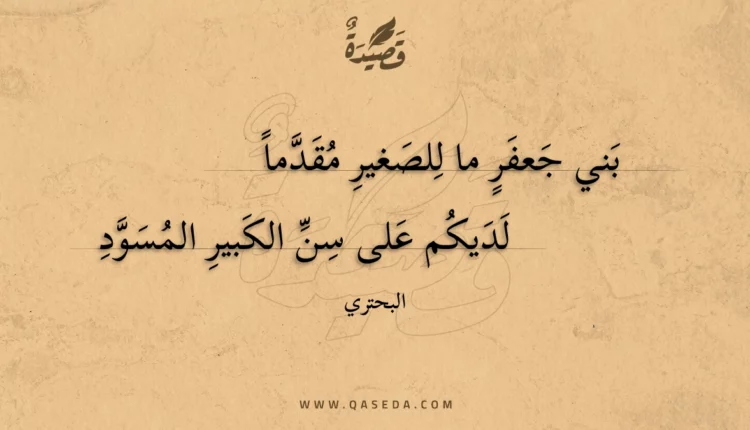 قَصِيْدَةٌ
بَني جَعفَرٍ ما لِلصَغيرِ مُقَدَّماً
لَدَيكُم عَلى سِنِّ الكَبيرِ المُسَوَّدِ
البحتري
WWW.QASEDA.COM